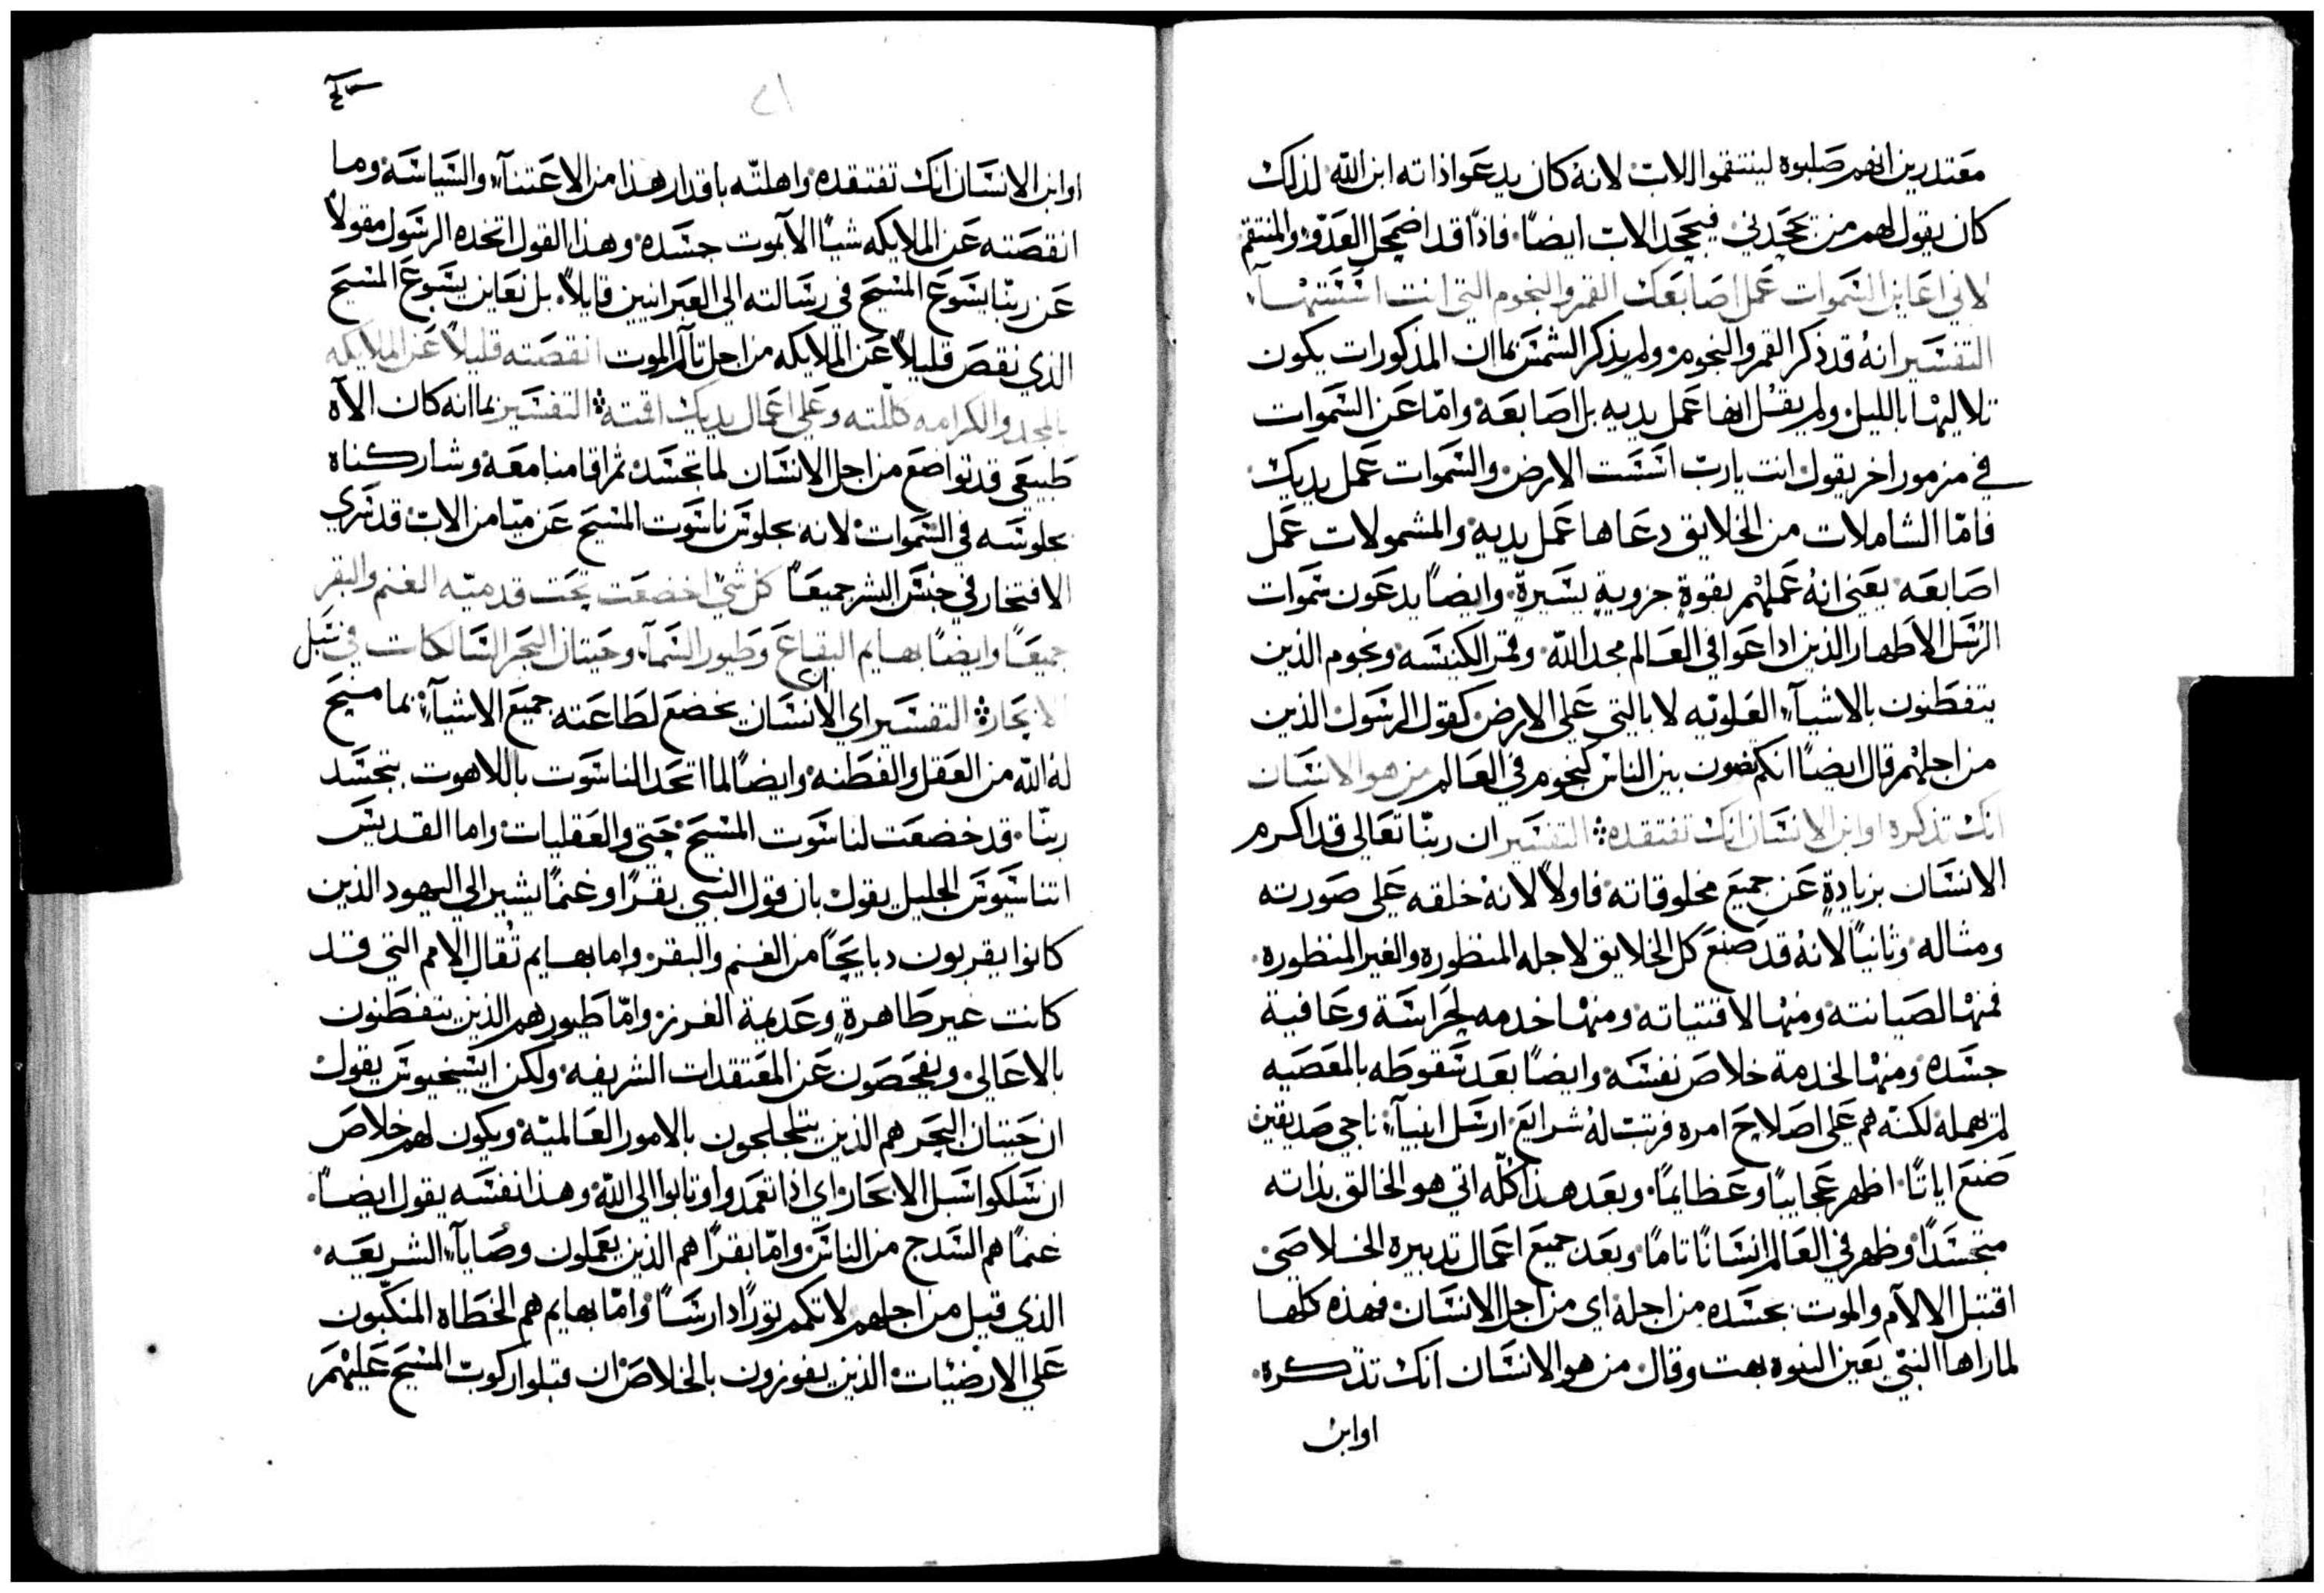 معتدرين انهم صلبوه لينتقموا للاب لانه كان يدعوا ذاته ابن الله لذلك
كان يقول لهم من يجحدني فيجحد الاب ايضاً فاذاً قد اضمحل العدو والمنتقم
لاني اعاين السموات عمل اصابعك القمر والنجوم التي انت اسستها
التفسير انه قد ذكر القمر والنجوم ولم يذكر الشمس بما ان المذكورات يكون
تلاليها بالليل ولم يقل انها عمل يديه بل اصابعه واما عن السموات
في مزمور اخر يقول انت يارب اسست الارض والسموات عمل يديك
فاما الشاملات من الخلايق دعاها عمل يديه والمشمولات عمل
اصابعه يعني انه عملهم بقوة جزوية يسيرة وايضاً يدعون سموات
الرسل الاطهار الذين اداعوا في العالم مجد الله وقمر الكنيسه ونجوم الذين
يتفطنون بالاشيآء العلويه لا بالتي على الارض كقول الرسول الذين
من اجلهم قال ايضاً انكم تضون بين الناس كنجوم في العالم من هو الانسان
انك تذكره او ابن الانسان انك تفتقده التفسير ان ربنا تعالى قد اكرم
الانسان بزيادة عن جميع مخلوقاته فاولاً لانه خلقه على صورته
ومثاله وثانياً لانه قد صنع كل الخلايق لاجله المنظوره والغير المنظوره
فمنها لصيانته ومنها لاقتياته ومنها خدمه لحراسة وعافية
جسده ومنها لخدمة خلاص نفسه وايضاً بعد سقوطه بالمعصيه
لم يهمله لكنه هم على اصلاح امره فرتب له شرايع ارسل انبيآء ناجي صديقين
صنع اياتاً اظهر عجايباً وعظايماً وبعد هذا كله اتي هو الخالق بذاته
متجسداً وظهر في العالم انساناً تاماً وبعد جميع اعمال تدبيره الخلاصي
اقتبل الالآم والموت بجسده من اجله اي من اجل الانسان فهذه كلها
لما راها النبي بعين النبوه بهت وقال من هو الانسان انك تذكره
او ابن
او ابن الانسان انك تفتقده واهلته باقدار هذا من الاعتنآء والسياسة وما
انقصته عن الملايكه شياً الا بموت جسده وهذا القول اتخده الرسول مقولاً
عن ربنا يسوع المسيح في رسالته الي العبرانيين قايلاً بل نعاين يسوع المسيح
الذي نقص قليلاً عن الملايكه من اجل تآلم الموت انقصته قليلاً عن الملايكه
بالمجد والكرامه كللته وعلي اعمال يديك اقمته التفسير بما انه كان الآه
طبيعي قد تواضع من اجل الانسان لما تجسد ثم اقامنا معه وشاركناه
بجلوسه في السموات لانه بجلوس ناسوت المسيح عن ميامن الاب قد سري
الافتخار في جنس البشر جميعاً كل شي اخضعت تحت قدميه الغنم والبقر
جميعاً وايضاً بهايم البقاع وطيور السمآء وحيتان البحر السالكات في سبل
الابحار التفسير اي ان الانسان يخضع لطاعته جميع الاشيآء بما منح
له الله من العقل والفطنه وايضاً لما اتحد الناسوت باللاهوت بتجسد
ربنا قد خضعت لناسوت المسيح حتي والعقليات واما القديس
اتناسيوس الجليل يقول بان قول النبي بقراً وغنماً يشير الي اليهود الذين
كانوا يقربون دبايحاً من الغنم والبقر واما بهايم تقال الامم التي قد
كانت غير طاهرة وعديمة الفرز واما طيور هم الذين يتفطنون
بالاعالي ويفحصون عن المعتقدات الشريفه ولكن ايسيخيوس يقول
ان حيتان البحر هم الذين يتلجلجون بالامور العالميه ويكون لهم خلاص
ان سلكوا سبل الابحار اي اذا تعمدوا وتابوا الي الله وهذا نفسه يقول ايضاً
غنماً هم السدج من الناس واما بقراً هم الذين يعملون وصايآء الشريعه
الذي قيل من اجلهم لا تكم ثوراً دارساً واما بهايم هم الخطاه المنكبون
علي الارضيات الذين يفوزون بالخلاص ان قبلوا ركوب المسيح عليهم